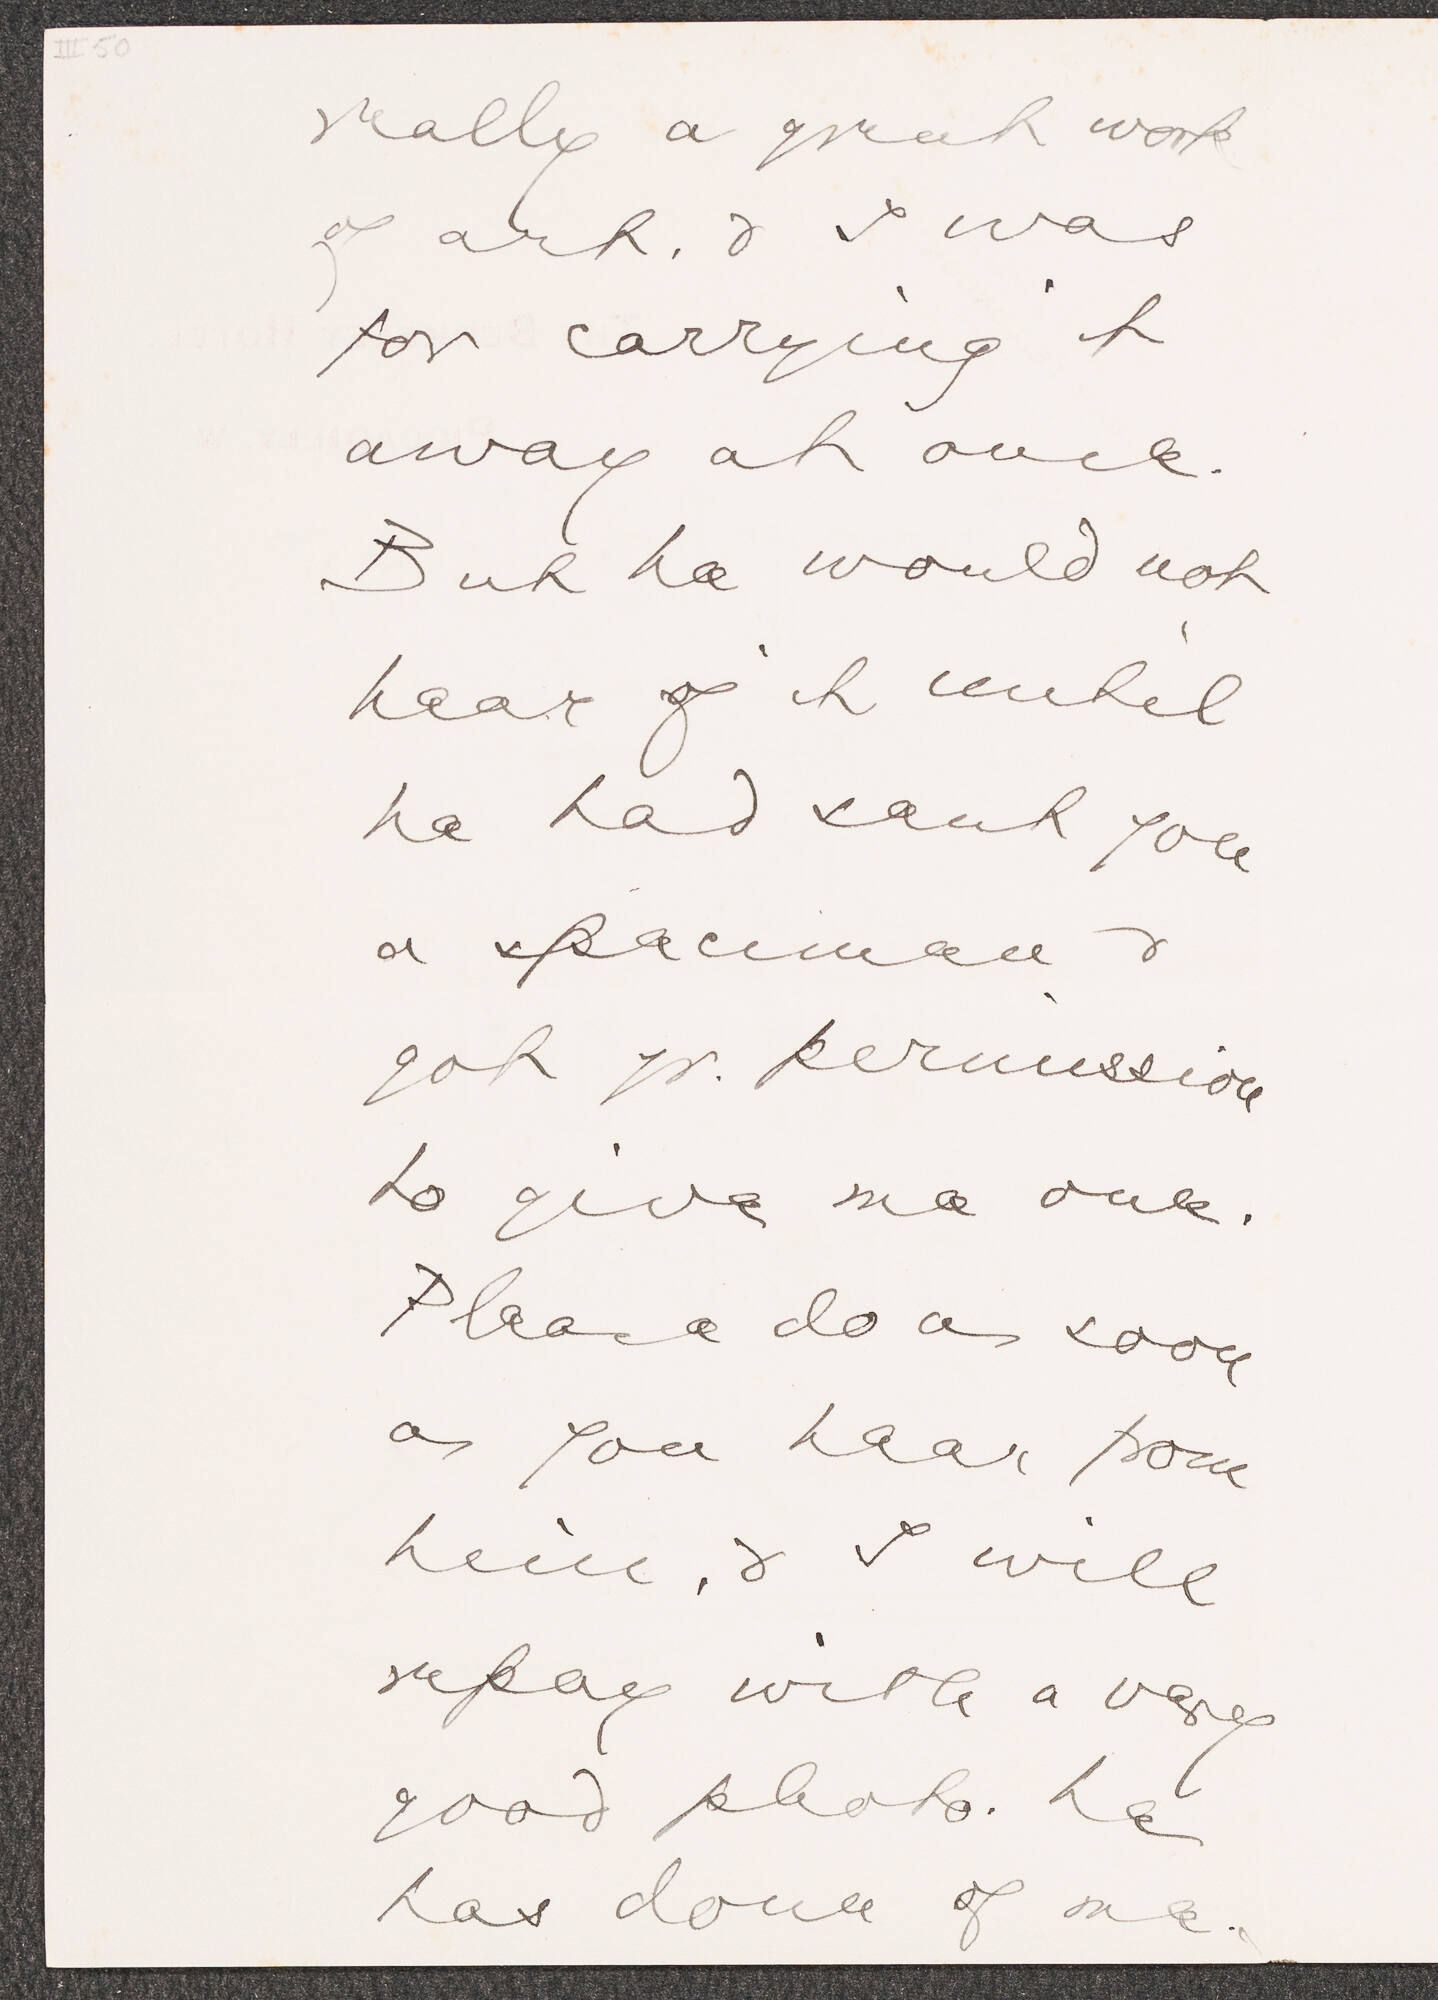 III 50
really a great work
of art, & I was
for carrying it
away at once.
But he would not
hear of it until
he had sent you
a specimen &
got yr. permission
to give me one.
Please do as soon
as you hear from
him, & I will
repay with a very
good photo. he
has done of me.